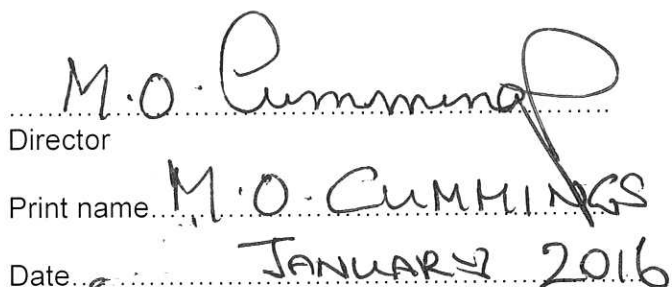 M.O. Cummings
Director
Print name M.O. CUMMINGS
Date JANUARY 2016